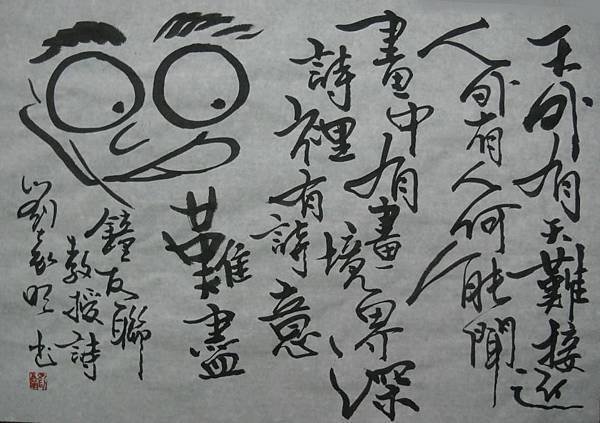 天外有天難接近
人外有人何能聞
畫中有畫境界深
詩裡有詩意
難盡
鐘友聯
教授詩
劉